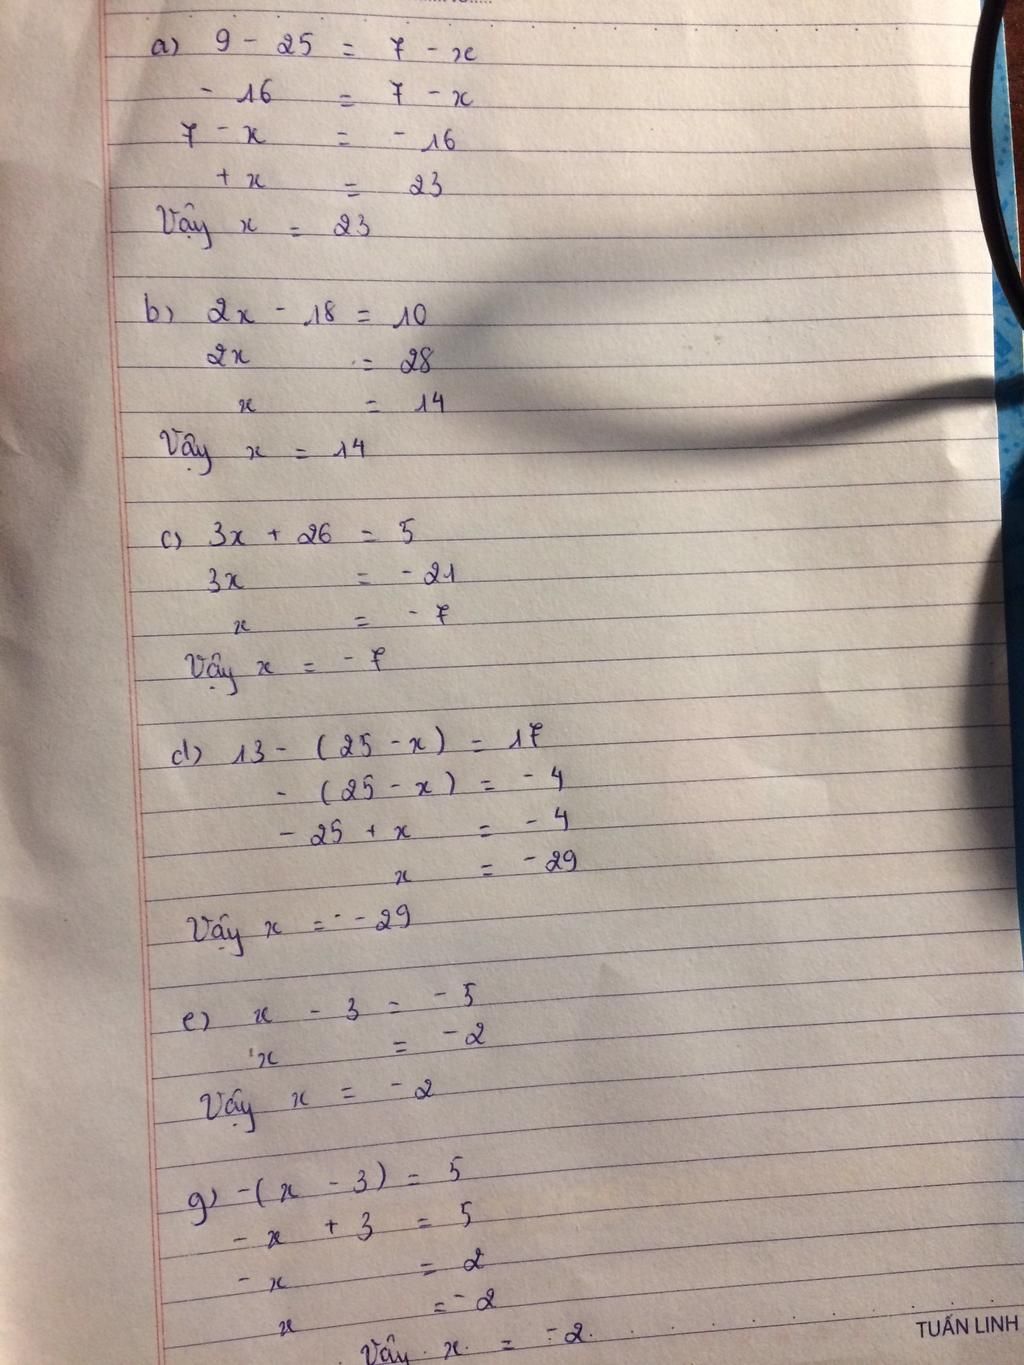 a) 9 - 25 = 7 - x
- 16 = 7 - x
7 - x = - 16
+ x = 23
Vậy x = 23
b) 2x - 18 = 10
2x = 28
x = 14
Vậy x = 14
c) 3x + 26 = 5
3x = - 21
x = - 7
Vậy x = - 7
d) 13 - (25 - x) = 17
- (25 - x) = - 4
- 25 + x = - 4
x = - 29
Vậy x = - - 29
e) x - 3 = - 5
x = - 2
Vậy x = - 2
g) -(x - 3) = 5
- x + 3 = 5
- x = 2
x = - 2
Vậy x = - 2.
TUẤN LINH